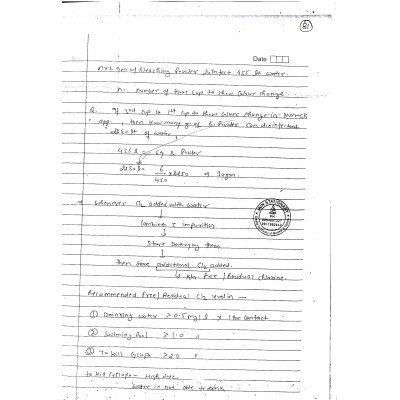 81
Date
n x 2 gm of Bleaching Powder disinfect 455 lit water.
n. number of first cup to show colour change.
Q. If 2nd cup is 1st cup to show colour change in Horrock
app. then how many gm of B. Powder can disinfectant
2250 lt of water.
455 l = 6g B. Powder
2250 l = 6/450 x 2250 = 30gm.
whenever Cl2 added with water
↓
Combine c impurities
↓
Start Destroying them
↓
then some additional Cl2 added.
↳ Free / Residual chlorine.
Recommended Free / Residual Cl2 level in —
① Drinking water ≥ 0.5 mg/l x 1 hr contact
② Swiming Pool ≥ 1.0 "
③ To Kill ≥ 2.0 "
To Kill Cyclops - High dose
water is not able to drink